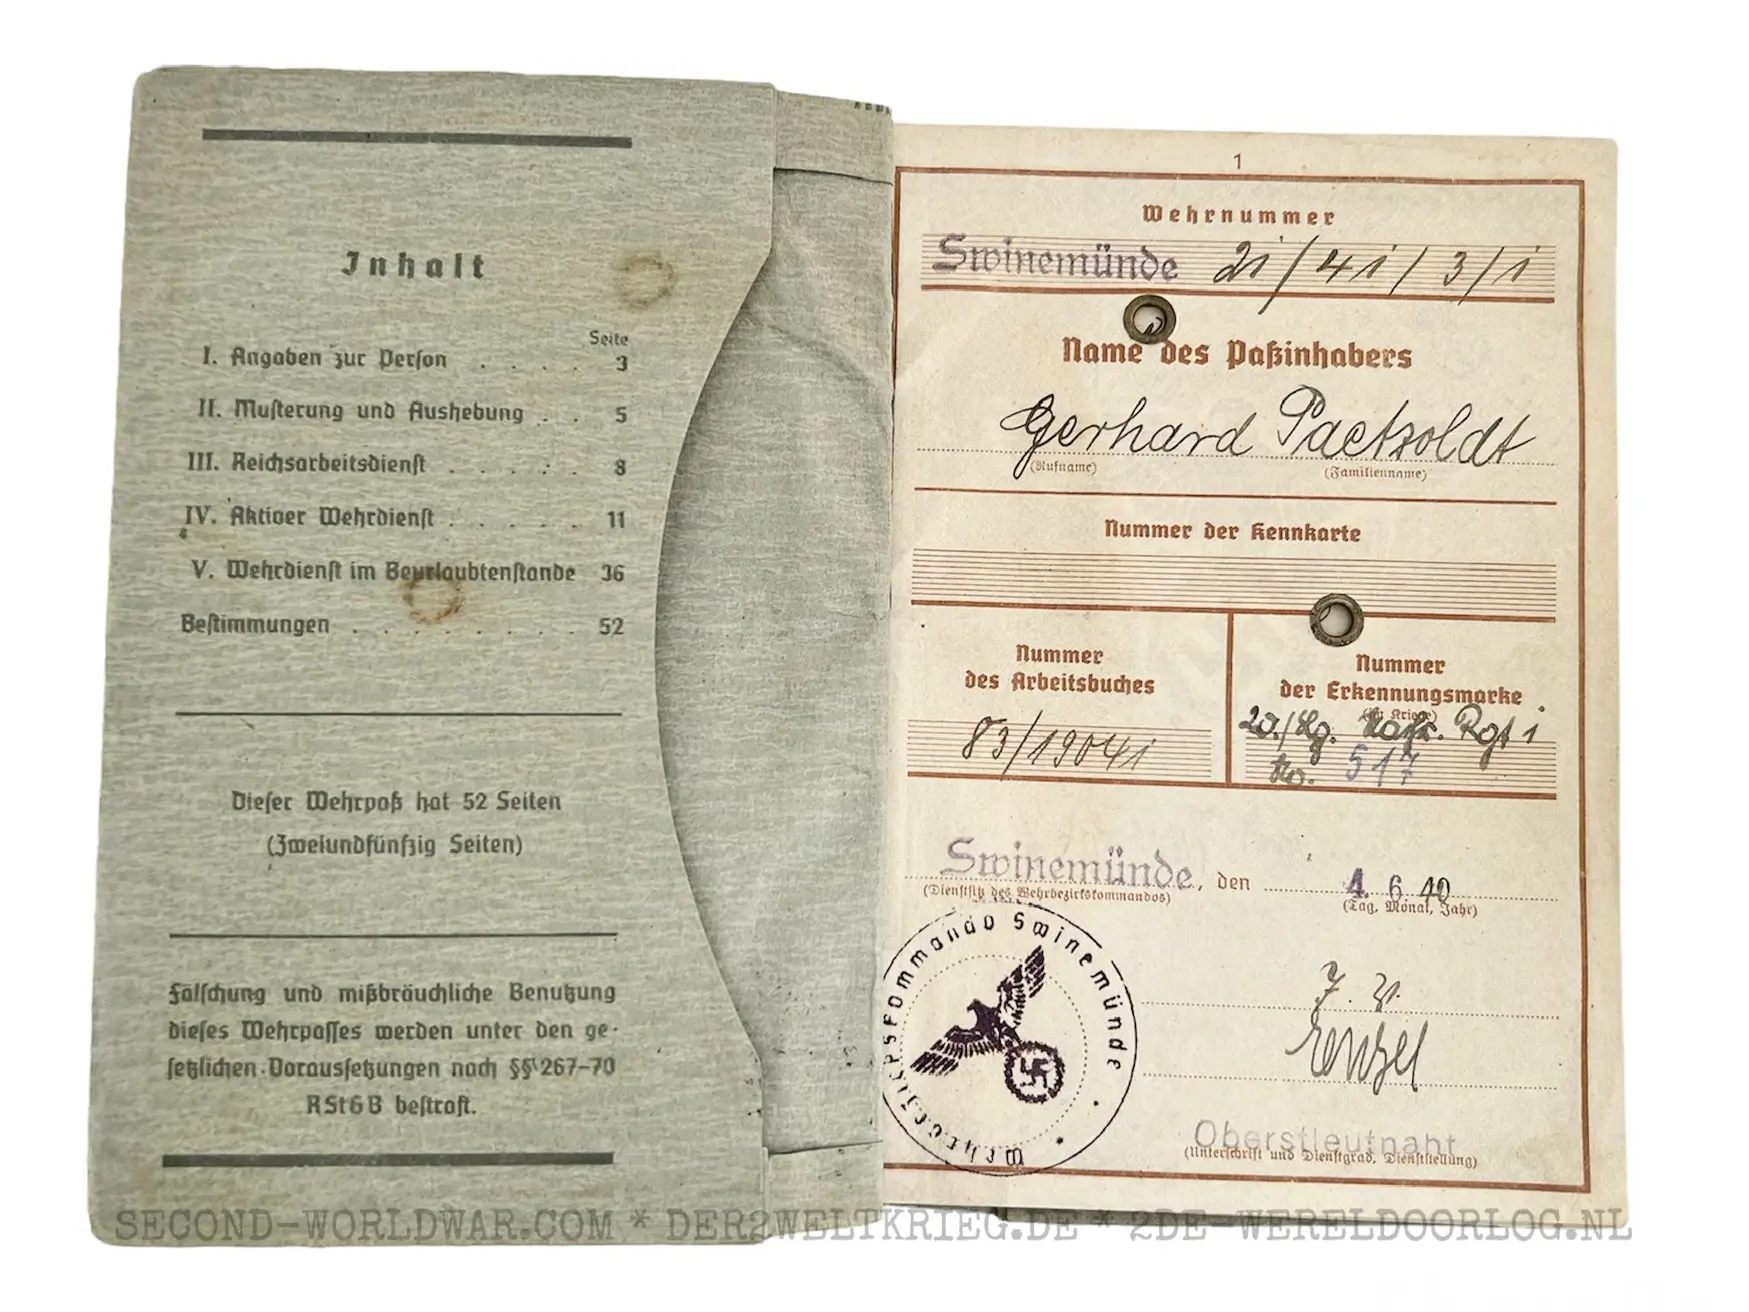 Inhalt
Seite
I. Angaben zur Person . . . . 3
II. Musterung und Aushebung . . 5
III. Reichsarbeitsdienst . . . . 8
IV. Aktiver Wehrdienst . . . . . 11
V. Wehrdienst im Beurlaubtenstande 36
Bestimmungen . . . . . . . . 52
Dieser Wehrpaß hat 52 Seiten
(Zweiundfünfzig Seiten)
Fälschung und mißbräuchliche Benutzung
dieses Wehrpasses werden unter den ge-
setzlichen Voraussetzungen nach §§ 267-70
RStGB bestraft.
1
Wehrnummer
Swinemünde 21/41/3/1
Name des Paßinhabers
Gerhard Paetzoldt
(Rufname) (Familienname)
Nummer der Kennkarte
Nummer
des Arbeitsbuches
83/19041
Nummer
der Erkennungsmarke
(im Kriege)
Rgt 1
No. 517
Swinemünde, den 4. 6. 40
(Dienstsitz des Wehrbezirkskommandos) (Tag, Monat, Jahr)
Wehrbezirkskommando Swinemünde
Oberstleutnant
(Unterschrift und Dienstgrad, Dienststellung)
SECOND-WORLDWAR.COM * DER2WELTKRIEG.DE * 2DE-WERELDOORLOG.NL